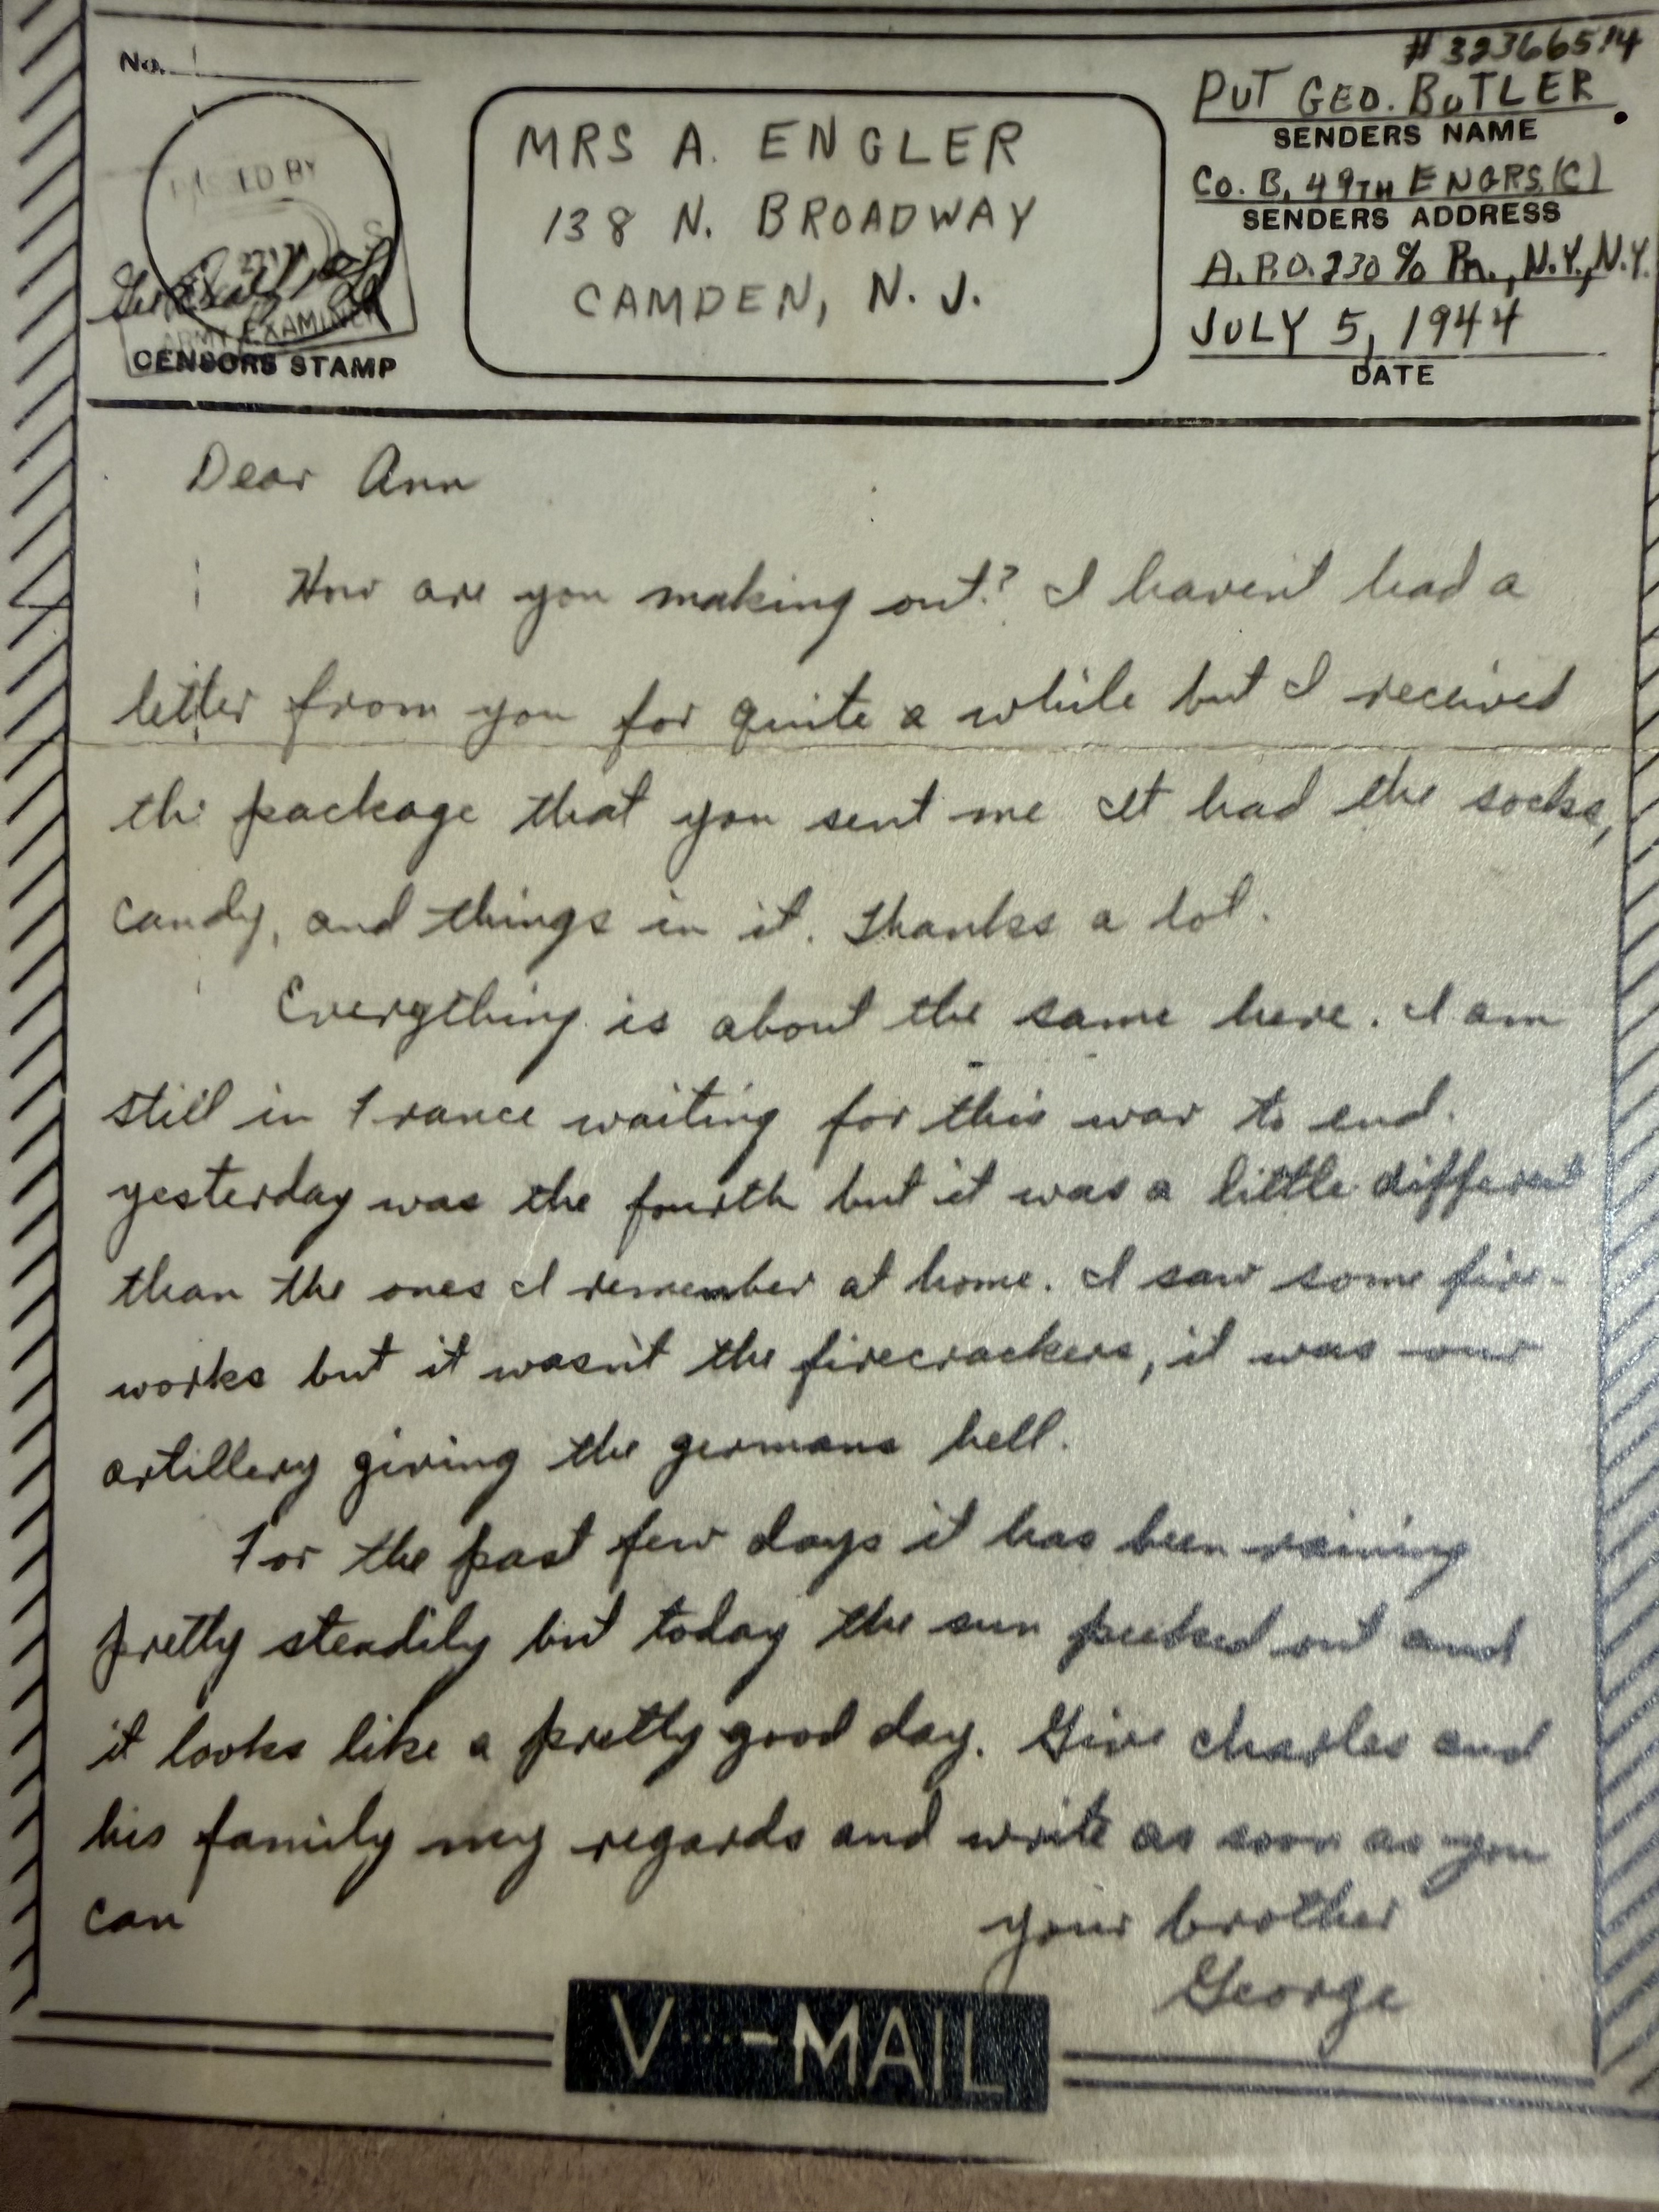 No.
#32366514
PVT GEO. BUTLER
SENDERS NAME
CO. B, 49TH ENGRS.(C)
SENDERS ADDRESS
A.P.O. 230 % Pm., N.Y., N.Y.
JULY 5, 1944
DATE
MRS A. ENGLER
138 N. BROADWAY
CAMDEN, N. J.
PASSED BY
ARMY EXAMINER
CENSORS STAMP
Dear Ann
How are you making out? I haven't had a
letter from you for quite a while but I received
the package that you sent me It had the socks,
candy, and things in it. Thanks a lot.
Everything is about the same here. I am
still in France waiting for this war to end.
yesterday was the fourth but it was a little different
than the ones I remember at home. I saw some fire-
works but it wasn't the firecrackers, it was our
artillery giving the germans hell.
For the past few days it has been raining
pretty steadily but today the sun peeked out and
it looks like a pretty good day. Give Charles and
his family my regards and write as soon as you
can
your brother
George
V···-MAIL